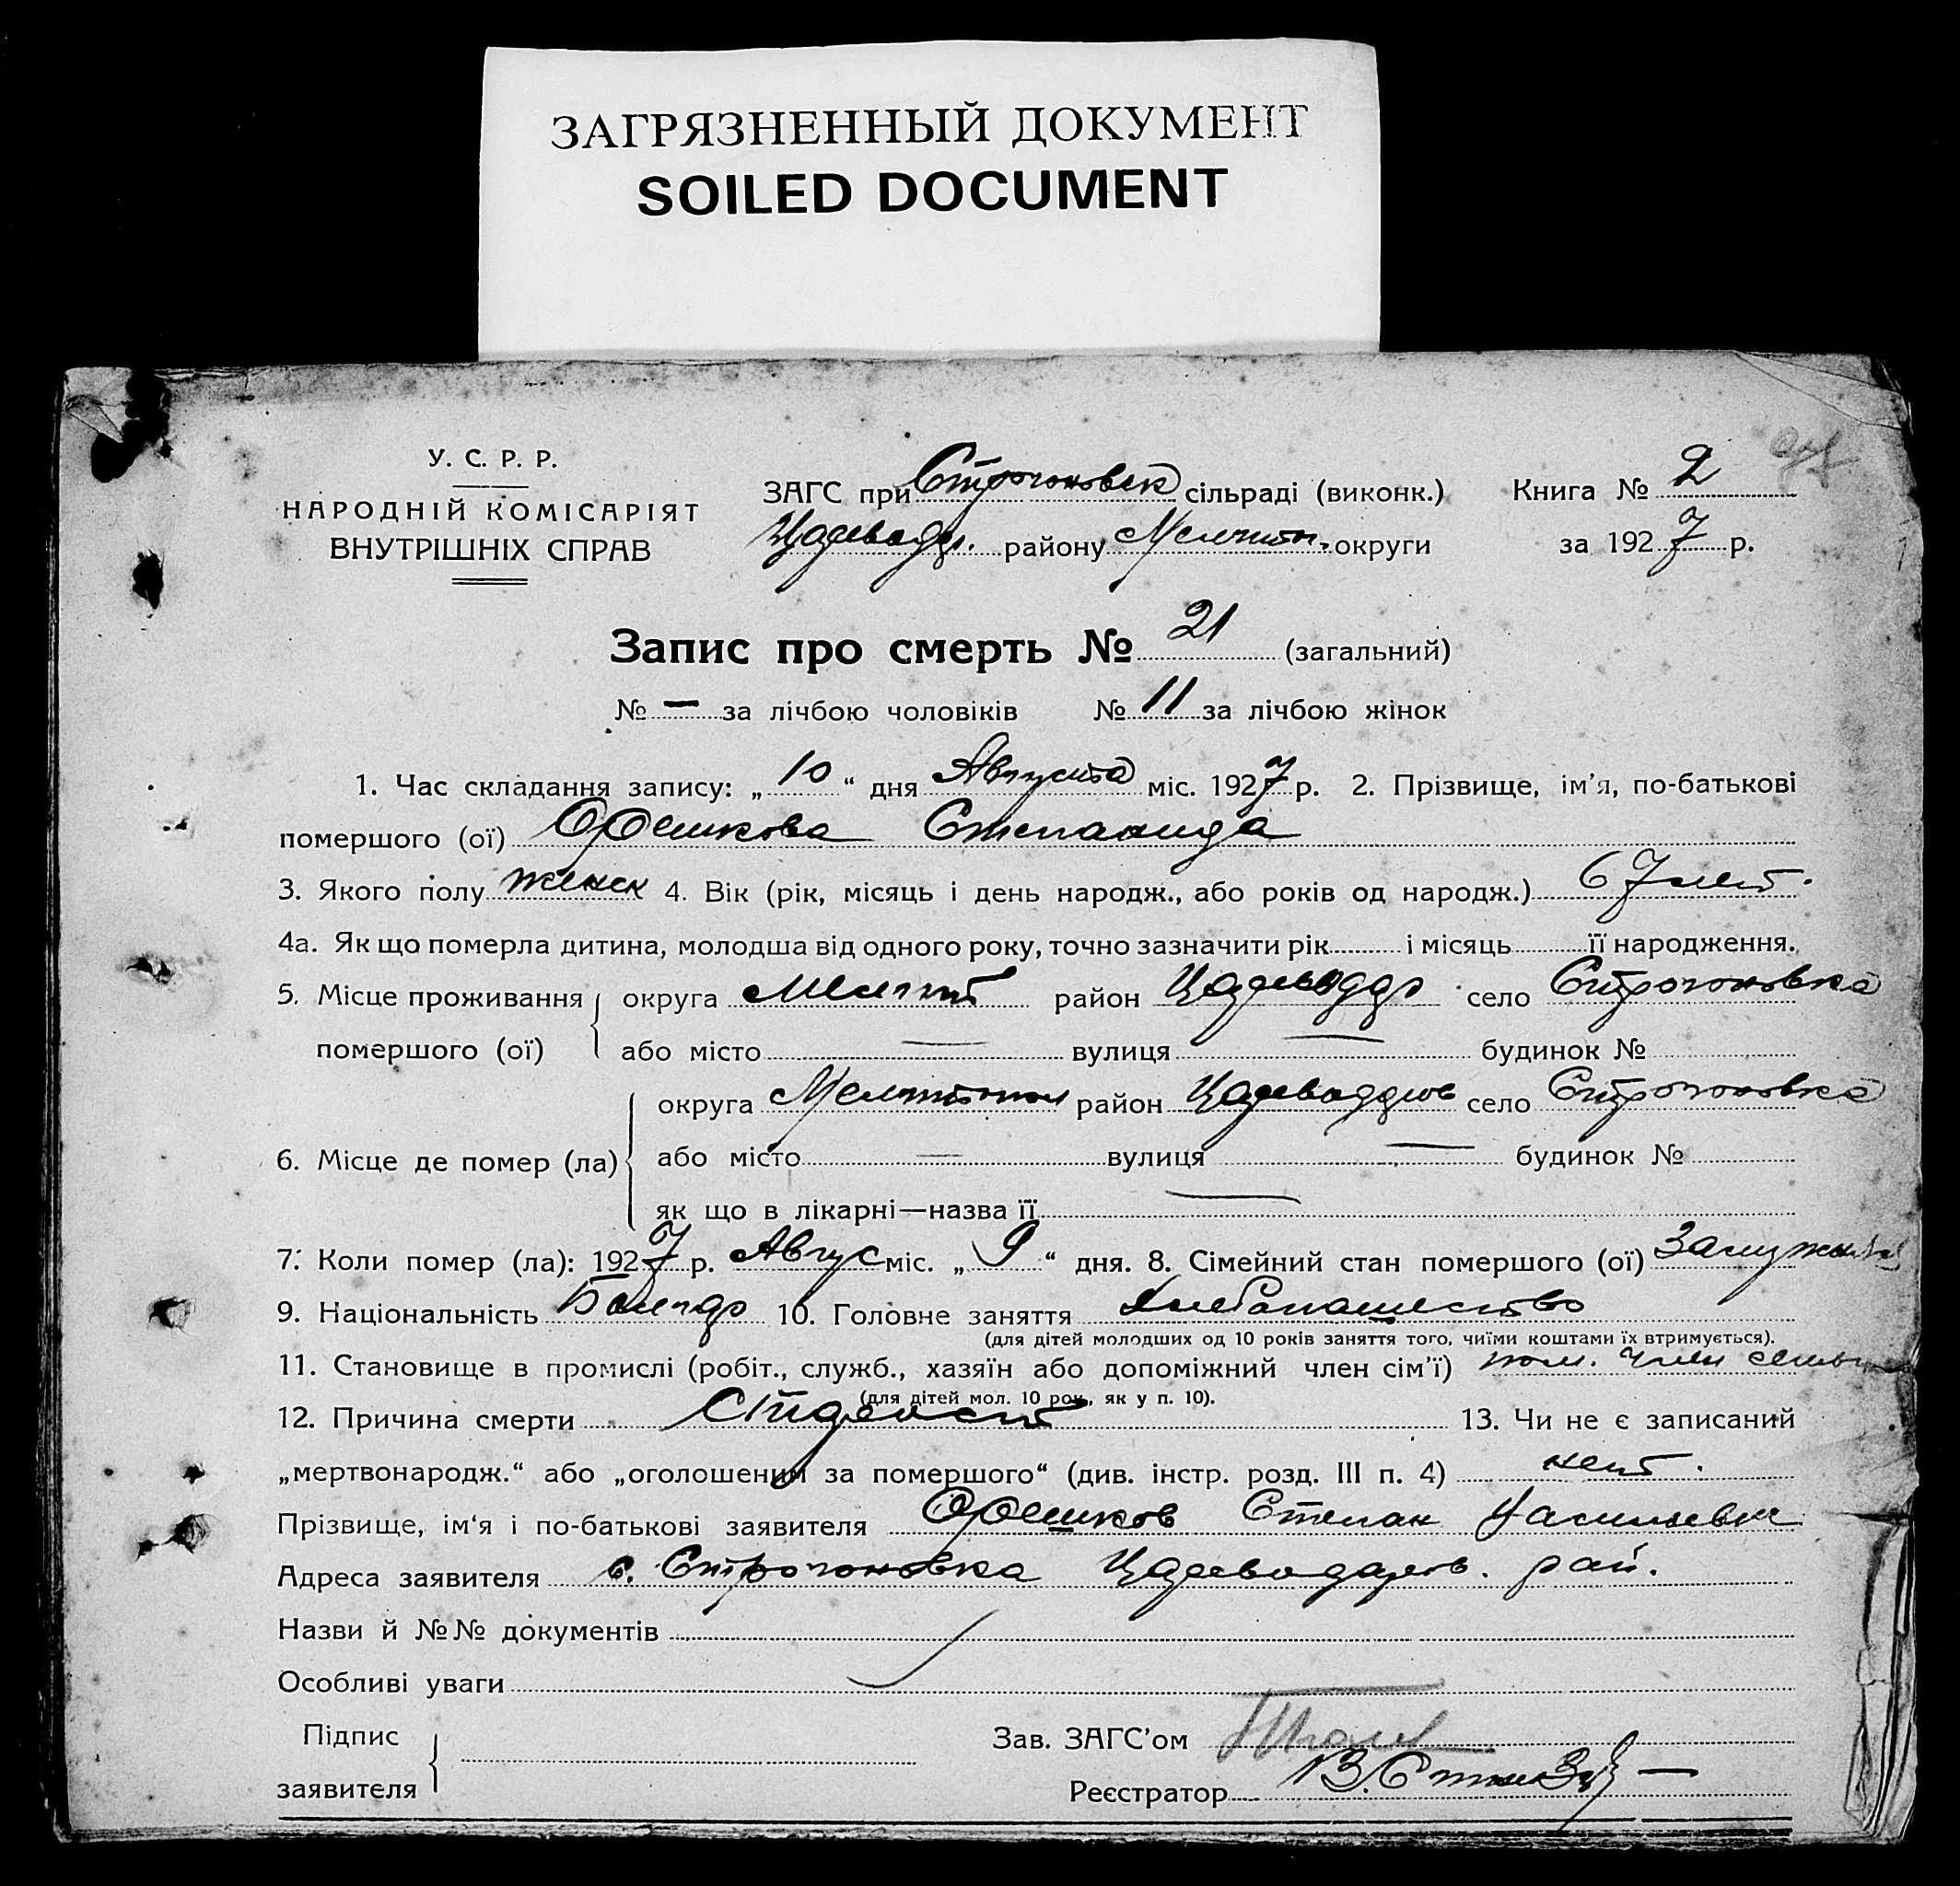 ЗАГРЯЗНЕННЫЙ ДОКУМЕНТ
SOILED DOCUMENT
У. С. Р. Р.
НАРОДНІЙ КОМІСАРІЯТ
ВНУТРІШНІХ СПРАВ
ЗАГС при Строгоновск сільраді (виконк.)
Царевод. району Мелитоп. округи
Книга № 2
за 1927 р.
Запис про смерть № 21 (загальний)
№ — за лічбою чоловіків № 11 за лічбою жінок
1. Час складання запису: „10“ дня Августа міс. 1927 р. 2. Прізвище, ім'я, по-батькові
помершого (ої) Орешкова Степанида
3. Якого полу женск 4. Вік (рік, місяць і день народж., або років од народж.) 67 лет.
4а. Як що померла дитина, молодша від одного року, точно зазначити рік і місяць її народження.
5. Місце проживання помершого (ої) округа Мелит район Цареводар село Строгоновка
або місто — вулиця — будинок №
6. Місце де помер (ла) округа Мелитопол район Цареводаров село Строгоновка
або місто — вулиця — будинок №
як що в лікарні—назва її —
7. Коли помер (ла): 1927 р. Авгус міс. „9“ дня. 8. Сімейний стан помершого (ої) Замужняя
9. Національність Болгар 10. Головне заняття Хлебопашество
(для дітей молодших од 10 років заняття того, чиїми коштами їх втримується).
11. Становище в промислі (робіт., служб., хазяїн або допоміжний член сім'ї) пом. член семьи
(для дітей мол. 10 рок., як у п. 10).
12. Причина смерти Старость 13. Чи не є записаний
„мертвонародж.“ або „оголошений за помершого“ (див. інстр. розд. III п. 4) нет.
Прізвище, ім'я і по-батькові заявителя Орешков Степан Васильевич
Адреса заявителя с. Строгоновка Цареводаров. рай.
Назви й №№ документів
Особливі уваги
Підпис
заявителя
Зав. ЗАГС'ом
Реєстратор